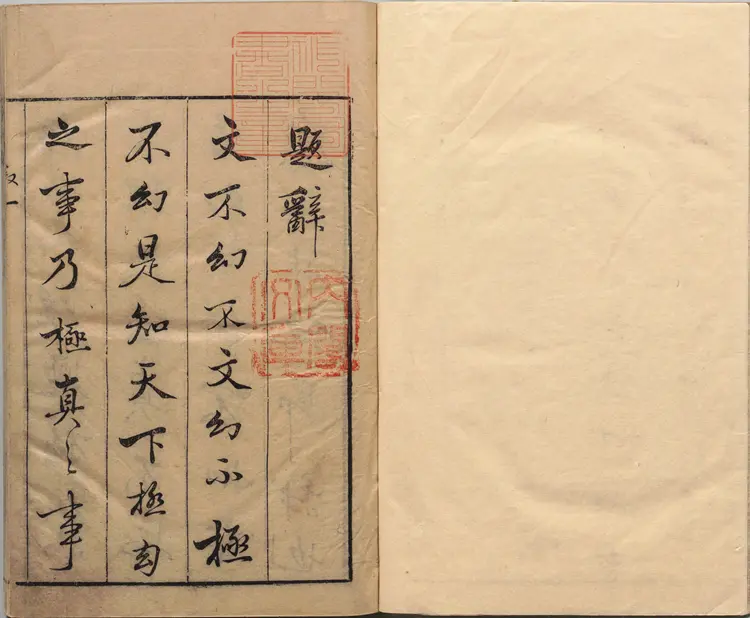 題辭
文不幻不文幻不極
不幻是知天下極幻
之事乃極真之事
内閣文庫